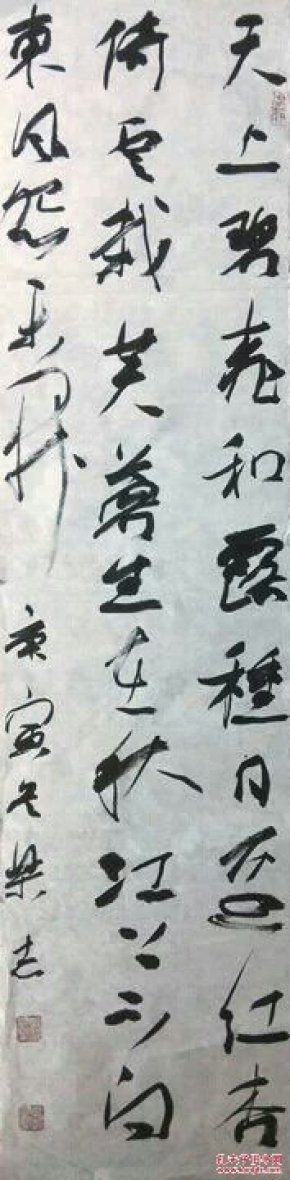 天上碧桃和露種日邊紅杏
倚雲栽芙蓉生在秋江上不向
東風怨未開
庚寅冬
孔夫子旧书网